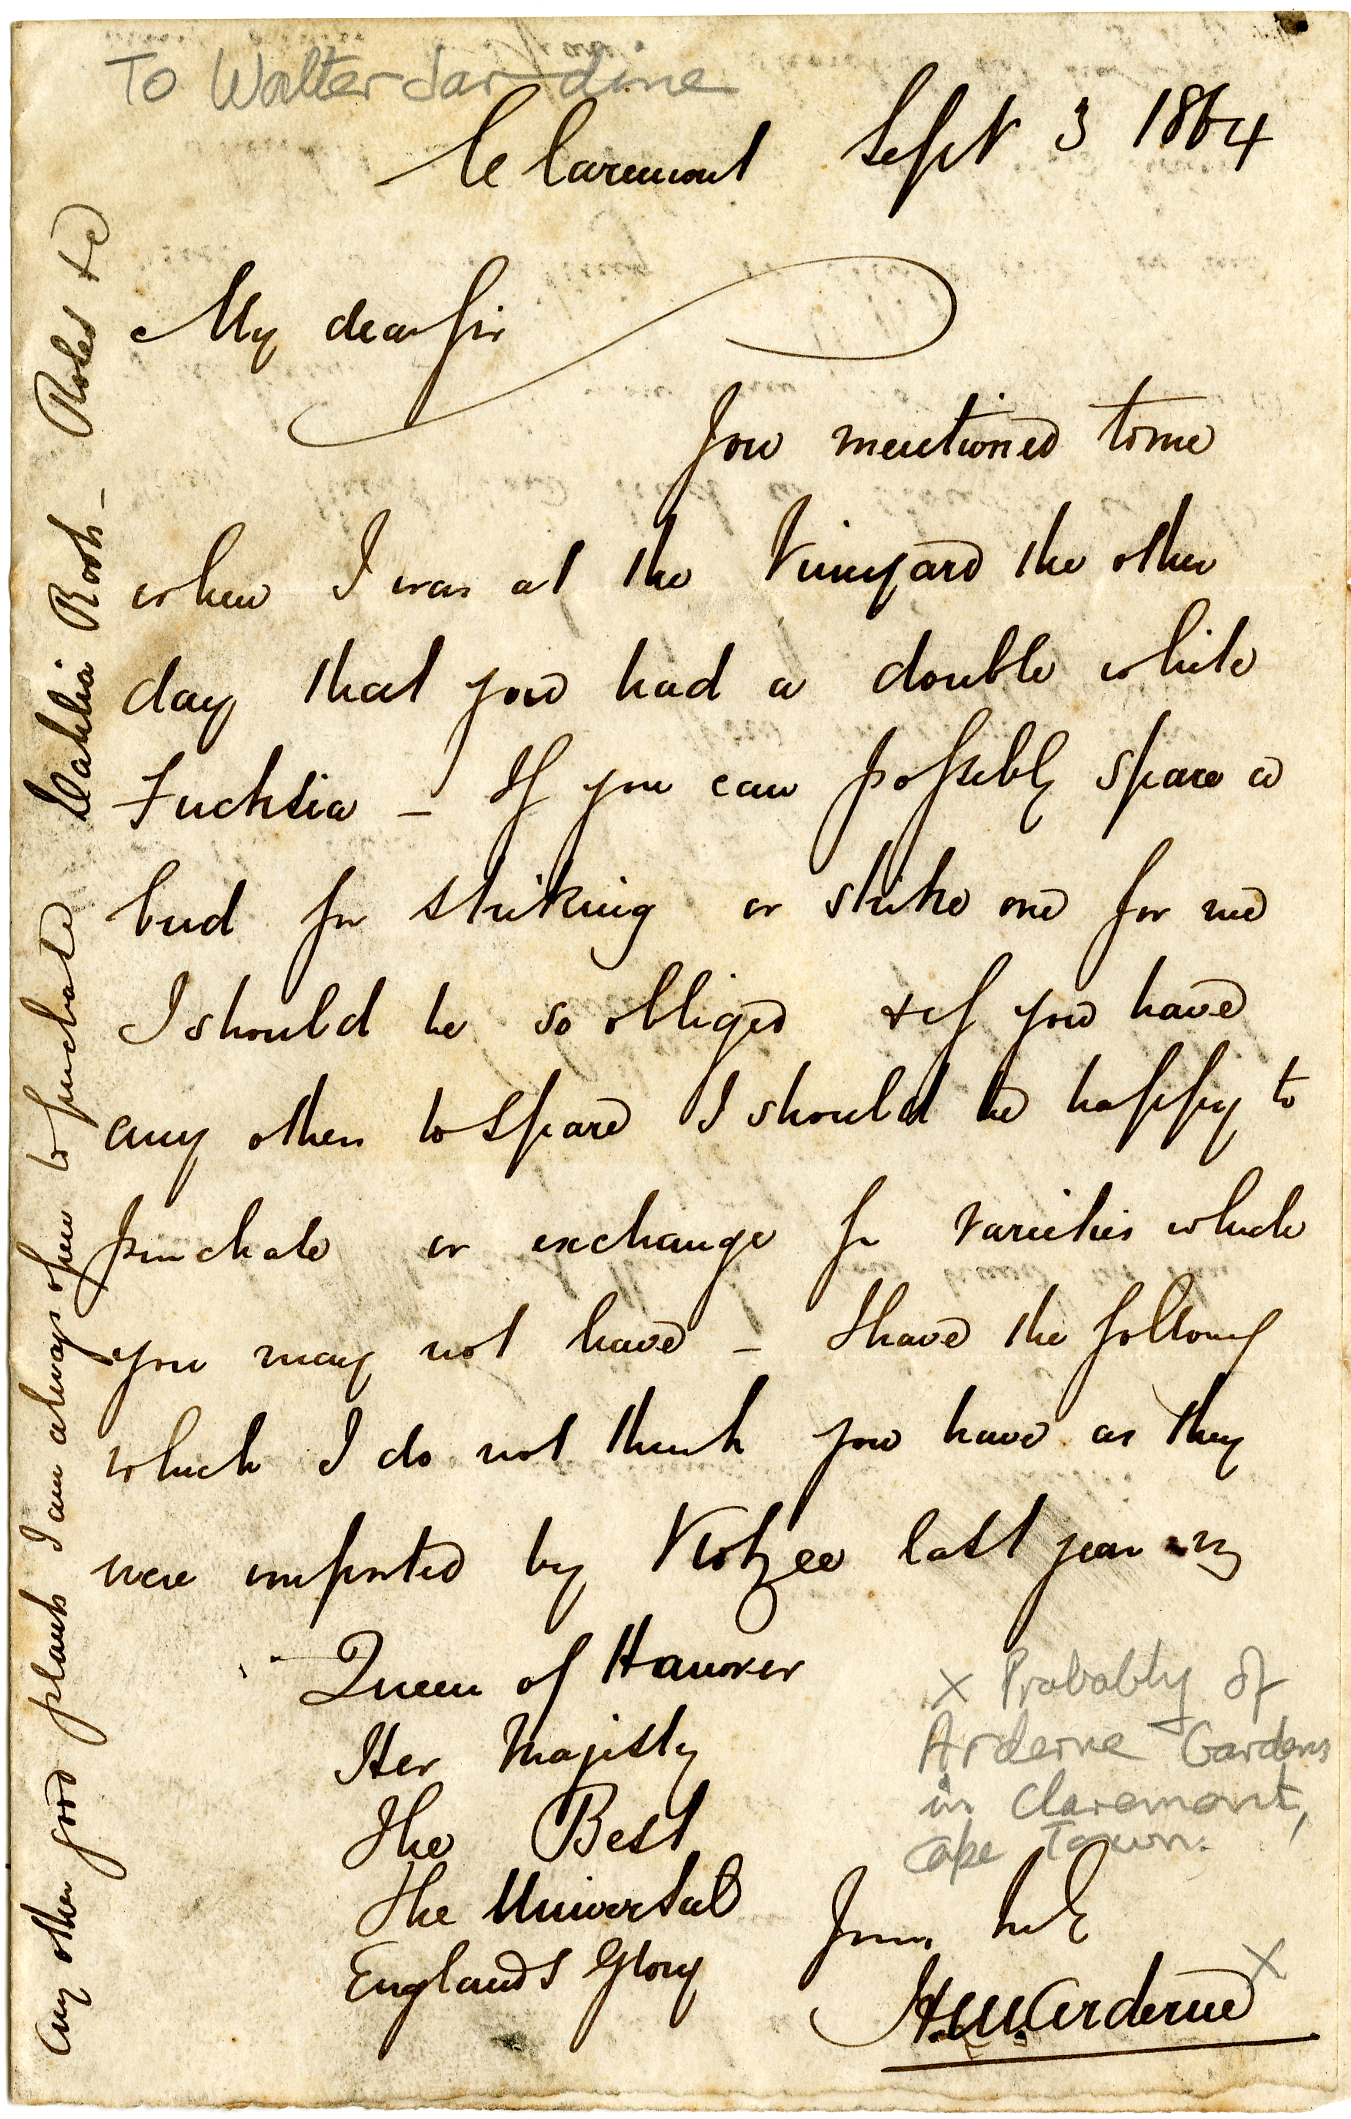 To Walter Jardine
Claremont Sept 3 1864
My dear Sir
You mentioned to me
when I was at the Vineyard the other
day that you had a double white
Fuchsia – If you can possibly spare a
bud for striking or strike one for me
I should be so obliged & if you have
any others to spare I should be happy to
purchase or exchange for varieties which
you may not have – I have the following
which I do not think you have as they
were imported by Kotzee last year viz
Queen of Hanover
Her Majesty
The Best
The Universal
England's Glory
Yours truly
H.M. Arderne x
x Probably of
Arderne Gardens
in Claremont,
Cape Town.
Any other good plants I am always open to purchase Dahlia Roots – Roses &c